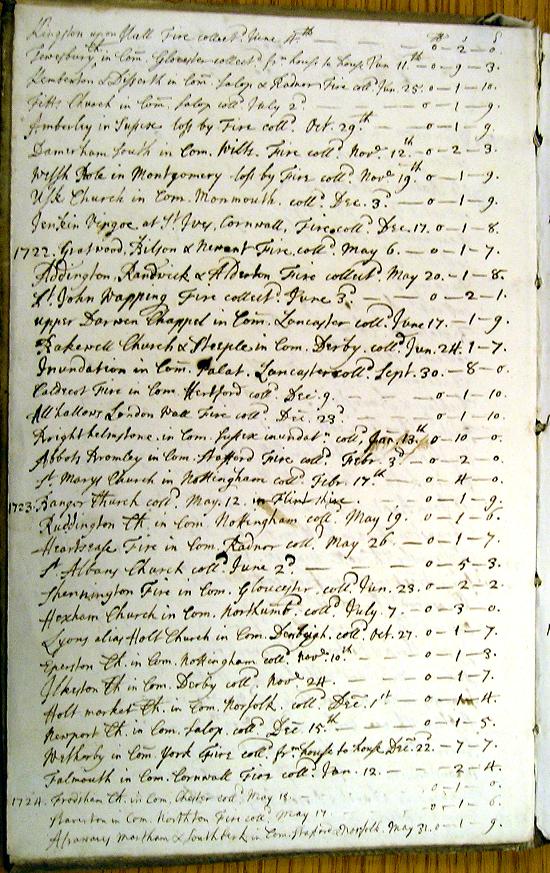 Kingston upon Hull Fire collect. June 4th — — — 0 – 2 – 0.
Tewcsbury in Com. Gloucester collectd. fm house to house Jun 11th. – 0 – 9 – 3.
& Disserth in Com. Salop & Radnor Fire coll. Jun. 25. 0 – 1 – 10.
Fitts Church in Com. Salop coll. July 2d. — — 0 – 1 – 9.
Amberley in Sussex loss by Fire colld. Oct. 29th — — 0 – 1 – 9.
Damerham South in Com. Wilts. Fire colld. Novr. 12th – 0 – 2 – 3.
Welsh Pole in Montgomery loss by Fire colld. Novr 19th. 0 – 1 – 9.
Usk Church in Com. Monmouth. colld. Dec. 3d. — 0 – 1 – 9.
Jenkin at St Ives, Cornwall, Fire colld. Dec. 17. 0 – 1 – 8.
1722. Gratwood, Bilson & Newent Fire, colld. May 6. – 0 – 1 – 7.
Addington, Randwick & Alderton Fire collect. May 20. – 1 – 8.
St. John Wapping Fire collect. June 3d. — — 0 – 2 – 1.
upper Darwen Chappel in Com. Lancaster colld. June 17. – 1 – 9.
Bakewell Church & Steeple in Com. Derby colld. Jun. 24. 1 – 7.
Inundation in Com. Palat. Lancaster colld. Sept. 30. – 8 – 0.
Caldecot Fire in Com. Hertford colld. Dec. 9. — 0 – 1 – 10.
Allhallows London Wall Fire colld. Dec. 23d. — 0 – 1 – 10.
Brighthelmstone in Com. Sussex inundatn. colld. Jan. 13.th 0 – 10 – 0.
Abbots Bromley in Com. Stafford Fire colld. Febr. 3d – 0 – 2 – 0.
St Marys Church in Nottingham colld. Febr. 17th — 0 – 4 – 0.
1723. Bangor Church colld. May. 12. in Flintshire. — 0 – 1 – 9.
Ruddington Ch. in Com. Nottingham coll. May 19. 0 – 1 – 6.
Heartsease Fire in Com. Radnor colld. May 26 – 0 – 1 – 7.
St Albans Church colld. June 2d. — — — 0 – 5 – 3.
Shennington Fire in Com. Gloucester colld. Jun. 23. 0 – 2 – 2.
Hexham Church in Com. Northumbd. colld. July. 7. – 0 – 3 – 0.
Lyons alias Holt Church in Com. Denbigh. colld. Oct. 27. – 0 – 1 – 7.
Eperston Ch. in Com. Nottingham colld. Novr. 10th. — 0 – 1 – 3.
Ilkeston Ch in Com. Derby colld. Novr 24. — — 0 – 1 – 7.
Holt market Ch. in Com. Norfolk. colld. Dec. 1st — 0 – 1 – 4.
Newport Ch. in Com. Salop colld. Dec. 15th — — 0 – 1 – 5.
Wetherby in Com. York Fire colld. frm house to house Dec. 22. – 7 – 7.
Falmouth in Com. Cornwall Fire colld. Jan. 12. — — 2 – 4.
1724. Frodsham Ch. in Com. Chester colld. May — 0 – 1 – 0.
Staverton in Com. Northton Fire colld. May 17 — 0 – 1 – 6.
& Southberk in Com. Stafford & Norfolk. May 31. – 0 – 1 – 9.